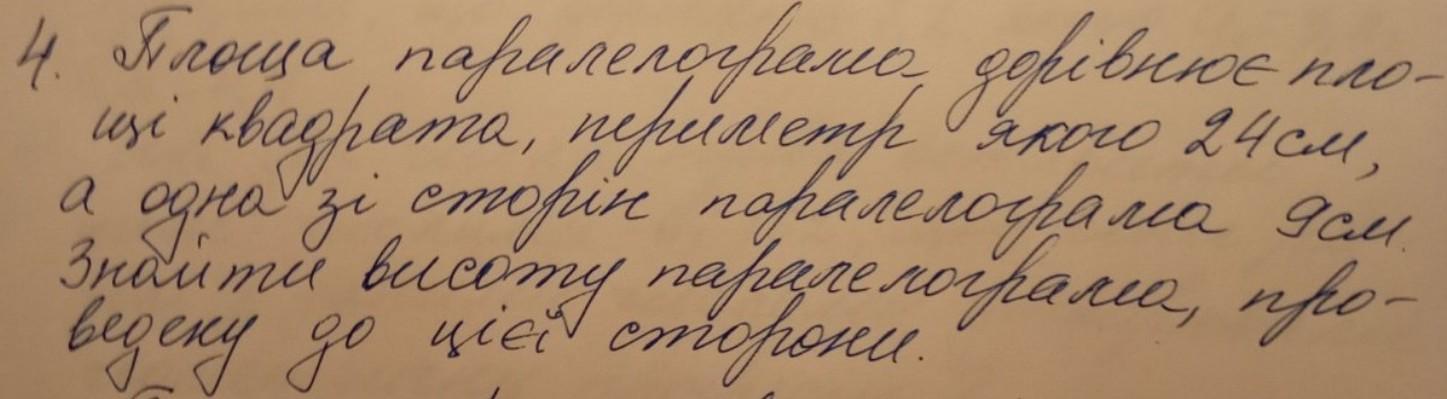 4. Площа паралелограма дорівнює пло-
щі квадрата, периметр якого 24 см,
а одна зі сторін паралелограма 9 см.
Знайти висоту паралелограма, про-
ведену до цієї сторони.